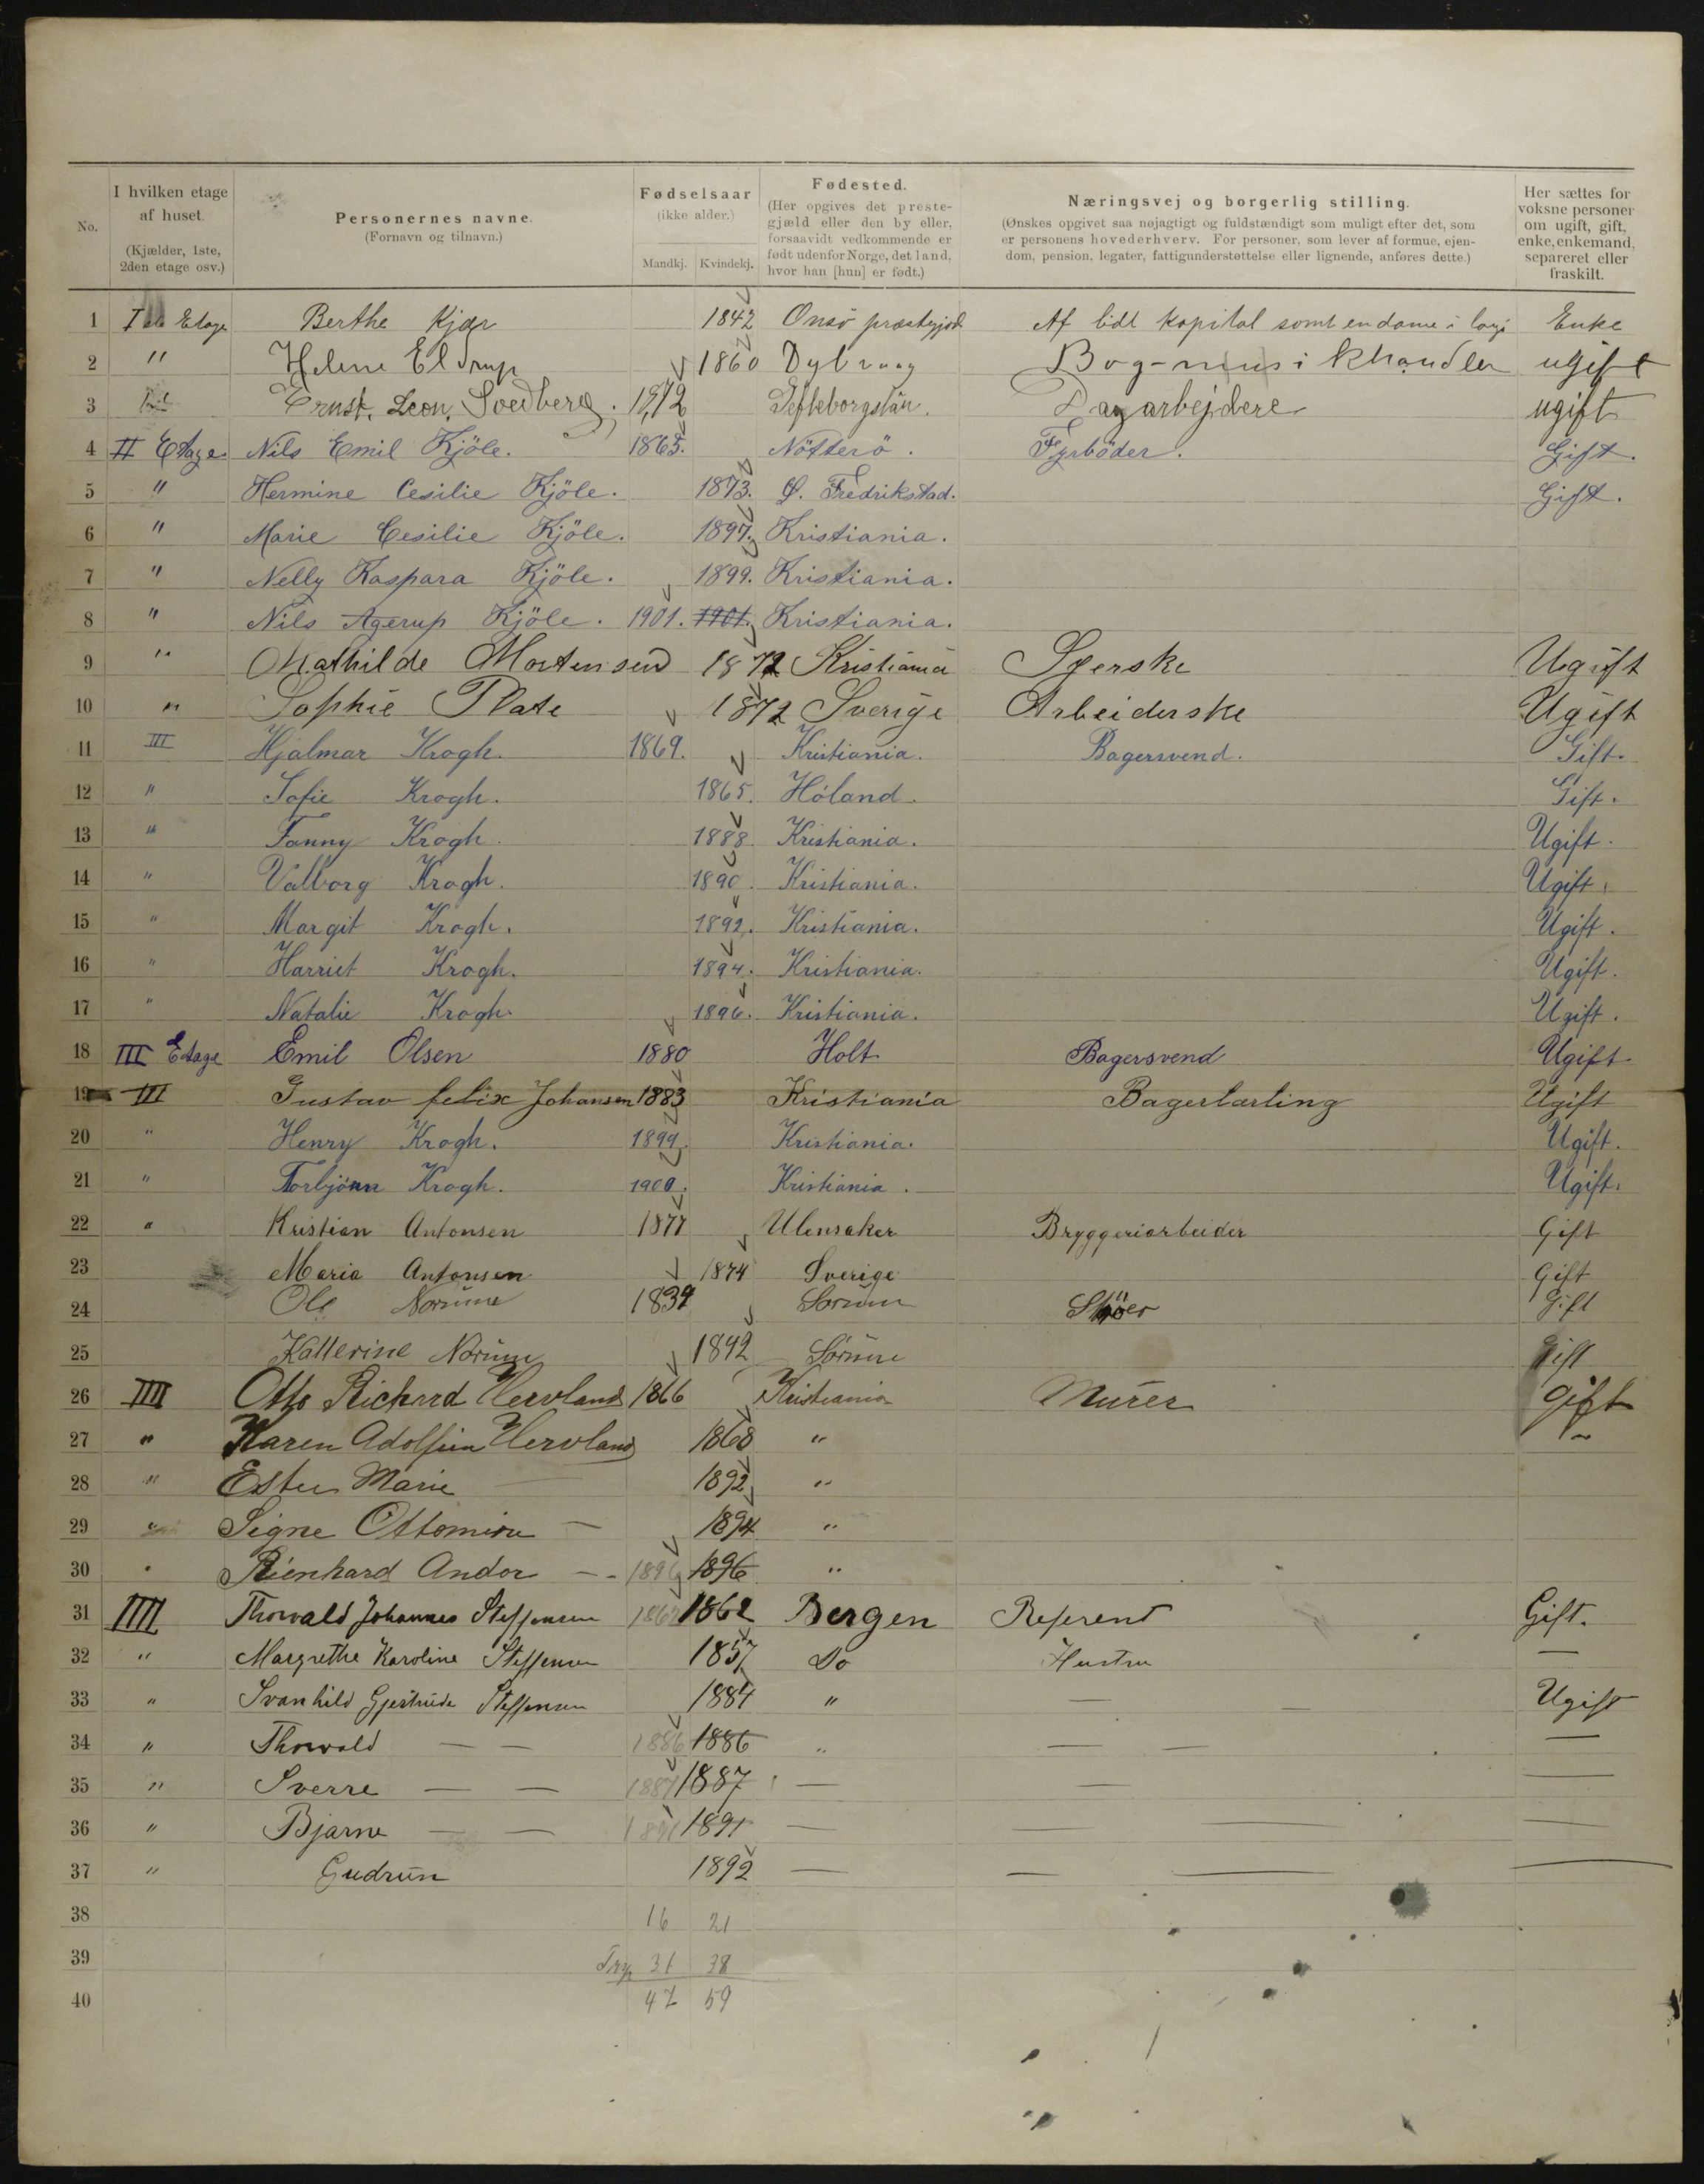 No.
I hvilken etage af huset. (Kjælder, 1ste, 2den etage osv.)
Personernes navne. (Fornavn og tilnavn.)
Fødselsaar (ikke alder.) Mandkj. Kvindekj.
Fødested. (Her opgives det prestegjæld eller den by eller, forsaavidt vedkommende er født udenfor Norge, det land, hvor han [hun] er født.)
Næringsvej og borgerlig stilling. (Ønskes opgivet saa nøjagtigt og fuldstændigt som muligt efter det, som er personens hovederhverv. For personer, som lever af formue, ejendom, pension, legater, fattigunderstøttelse eller lignende, anføres dette.)
Her sættes for voksne personer om ugift, gift, enke, enkemand, separeret eller fraskilt.
1 Berthe Kjær 1842 Onsö præstegjed Af lidt kapital samt en dame i logi Enke
2 " Helene Eldrup 1860 Dybvaag Bog-musikhandler ugift
3 Ernst. Leon. Svedberg. 1872 Gefleborgslän. Dagarbejdere ugift
4 II Etage Nils Emil Kjöle. 1865. Nötterö. Fyrböder. Gift.
5 " Hermine Cesilie Kjöle. 1873. Ö. Fredrikstad. Gift.
6 " Marie Cesilie Kjöle. 1897. Kristiania.
7 " Nelly Kaspara Kjöle. 1899. Kristiania.
8 " Nils Agerup Kjöle. 1901. 1901. Kristiania.
9 " Mathilde Mortensen 1872 Kristiania Syerske Ugift
10 " Sophie Plate 1872 Sverige Arbeiderske Ugift
11 III Hjalmar Krogh. 1869. Kristiania. Bagersvend. Gift.
12 " Sofie Krogh. 1865. Höland. Gift.
13 " Fanny Krogh. 1888. Kristiania. Ugift.
14 " Valborg Krogh. 1890. Kristiania. Ugift.
15 " Margit Krogh. 1892. Kristiania. Ugift.
16 " Harriet Krogh. 1894. Kristiania. Ugift.
17 " Natalie Krogh. 1896. Kristiania. Ugift.
18 III Etage Emil Olsen 1880 Holt Bagersvend Ugift
19 III Gustav felix Johansen 1883 Kristiania Bagerlærling Ugift
20 " Henry Krogh. 1899. Kristiania. Ugift.
21 " Torbjörn Krogh. 1900. Kristiania. Ugift.
22 " Kristian Antonsen 1877 Ulensaker Bryggeriarbeider Gift
23 Maria Antonsen 1874 Sverige Gift
24 Ole Norum 1839 Sorum Gift
25 Katterine Norum 1842 Sörum Gift
26 IIII Otto Richard Hervland 1866 Kristiania Murer gift
27 " Karen Adolfin Hervland 1868 " "
28 " Ester Marie 1892 "
29 " Signe Ottomine — 1894 "
30 " Rienhard Andor — 1896 1896 "
31 IIII Thorvald Johannes Steffensen 1862 1862 Bergen Referent Gift.
32 " Margrethe Karoline Steffensen 1857 Do Hustru —
33 " Svanhild Gjertrude Steffensen 1884 " — — Ugift
34 " Thorvald — — 1886 1886 " — — —
35 " Sverre — — 1887 1887 " — — —
36 " Bjarne — — 1891 1891 — — — —
37 " Gudrun 1892 — — — —
38 16 21
39 31 38
40 47 59